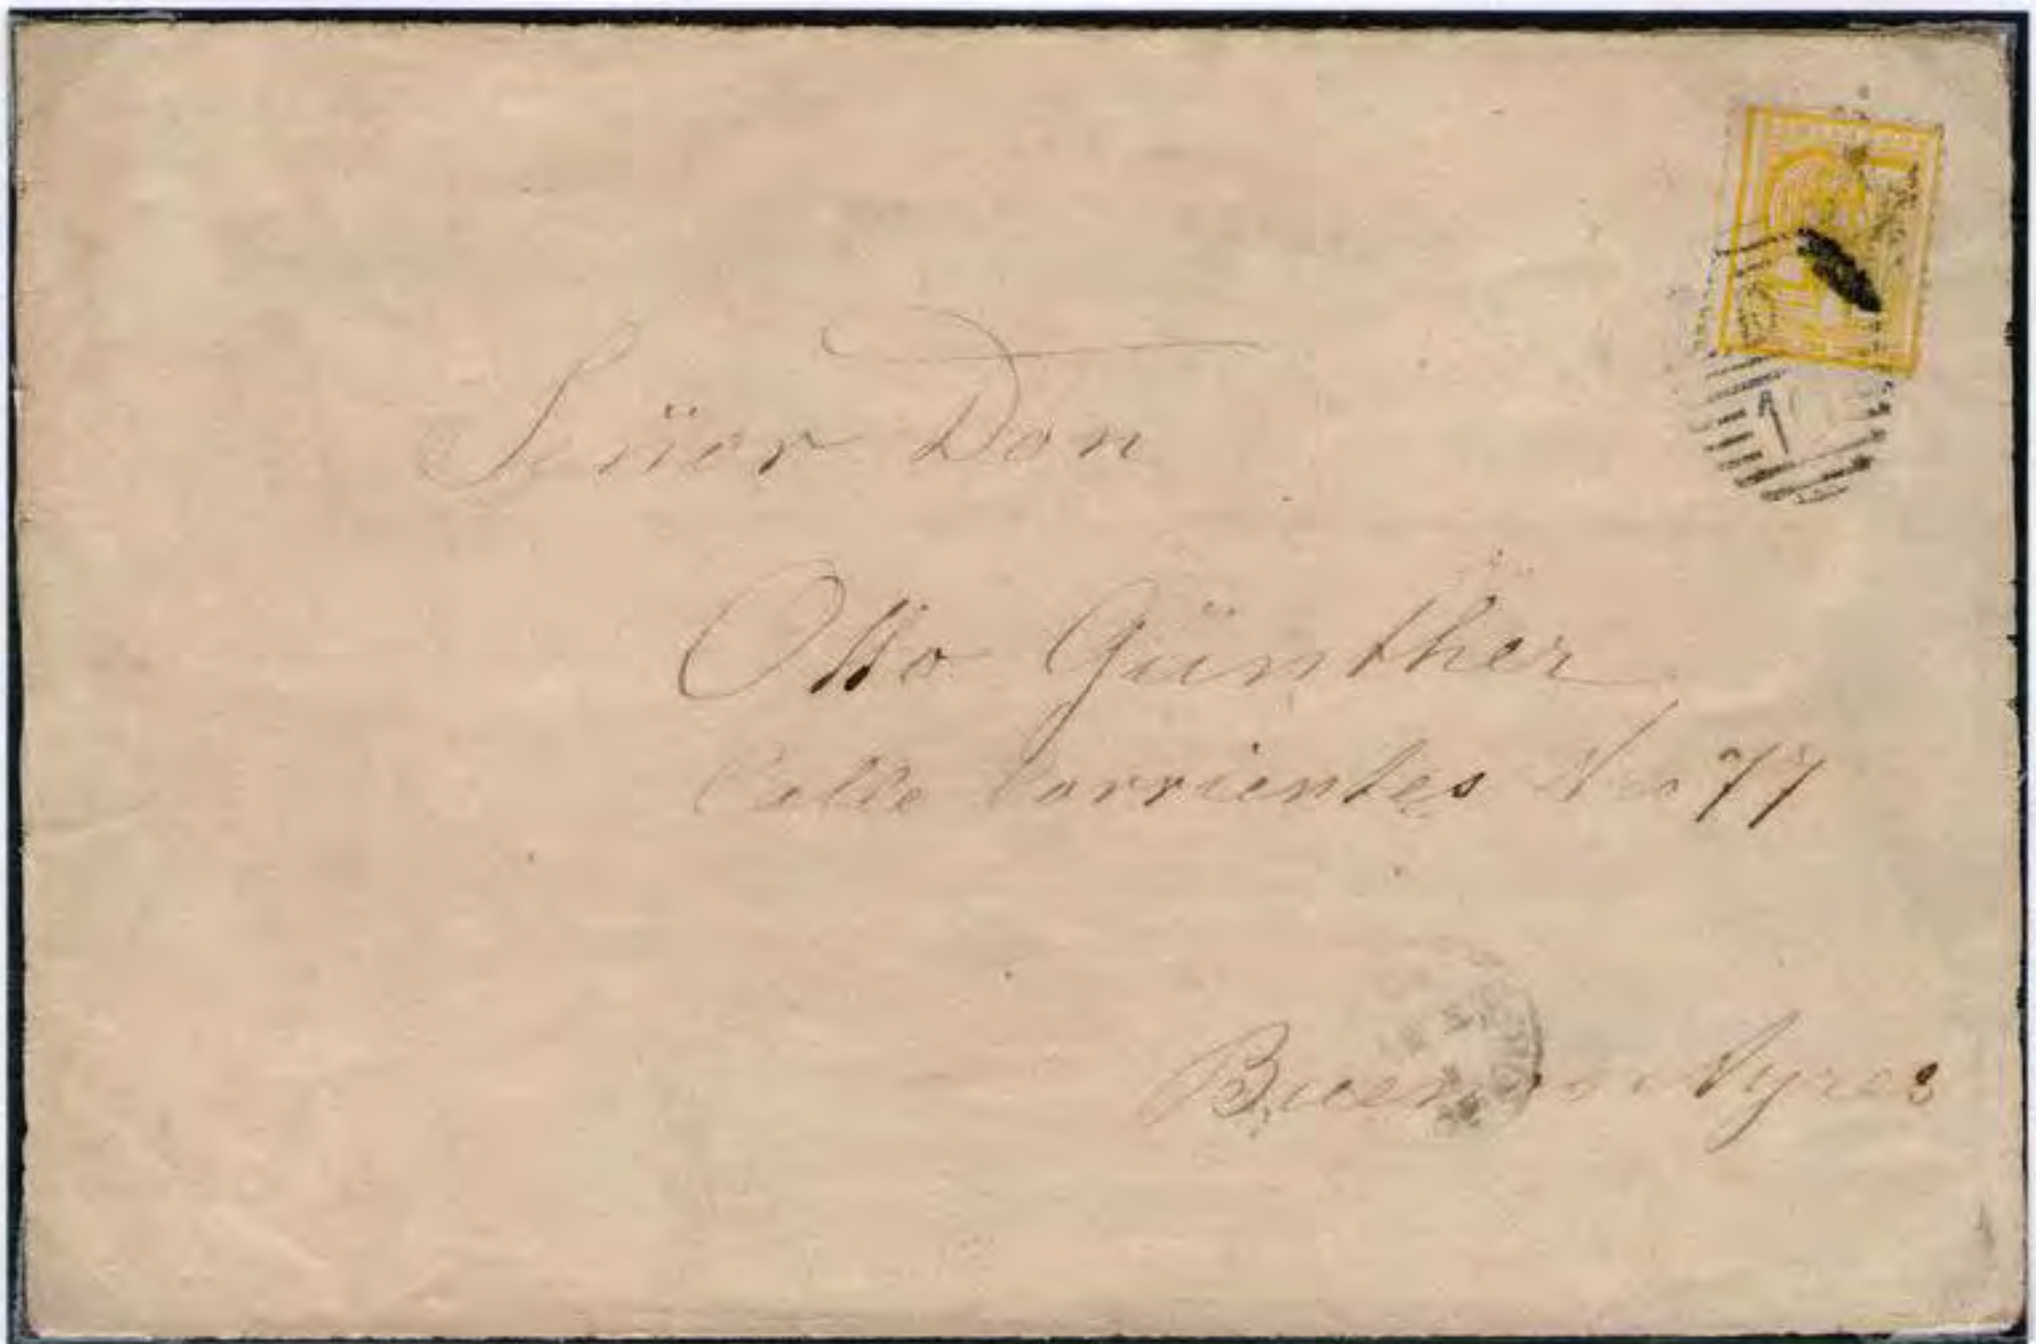 Señor Don
Otto Günther
Calle Corrientes Nro 77
Buenos Ayres